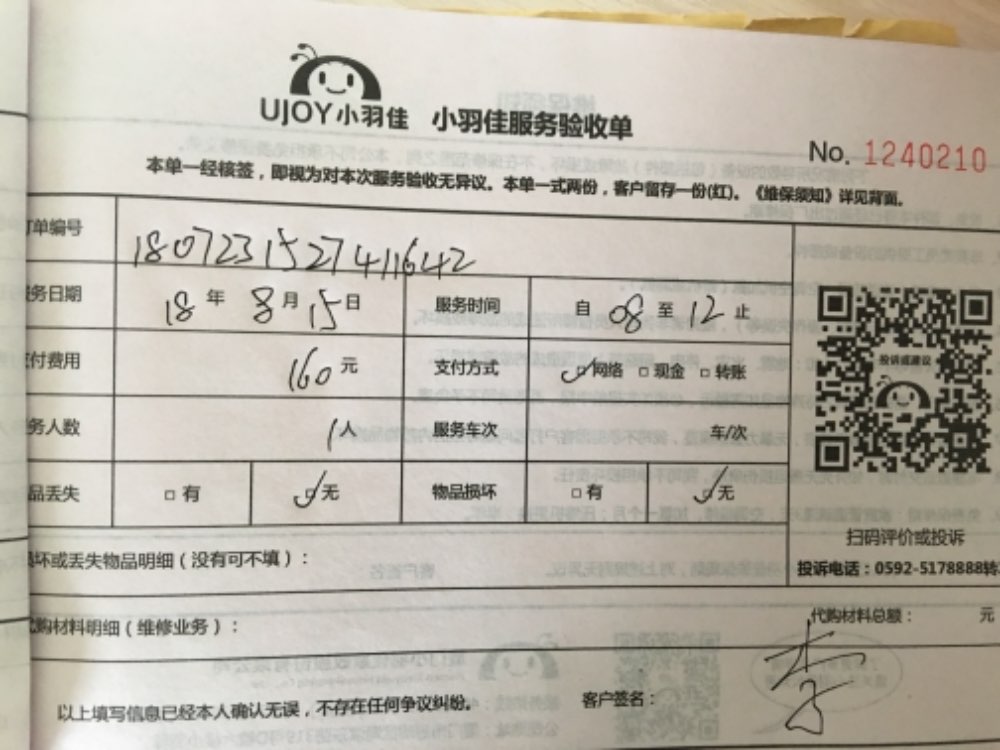 UJOY小羽佳 小羽佳服务验收单
No. 1240210
本单一经核签，即视为对本次服务验收无异议。本单一式两份，客户留存一份(红)。《维保须知》详见背面。
订单编号 1807231527411642
服务日期 18 年 8 月 15 日 服务时间 自 08 至 12 止
支付费用 160 元 支付方式 网络 现金 转账
服务人数 1 人 服务车次 车/次
物品丢失 有 无 物品损坏 有 无
投诉或建议
扫码评价或投诉
投诉电话：0592-5178888转
损坏或丢失物品明细（没有可不填）：
代购材料明细（维修业务）：
代购材料总额： 元
以上填写信息已经本人确认无误，不存在任何争议纠纷。 客户签名：